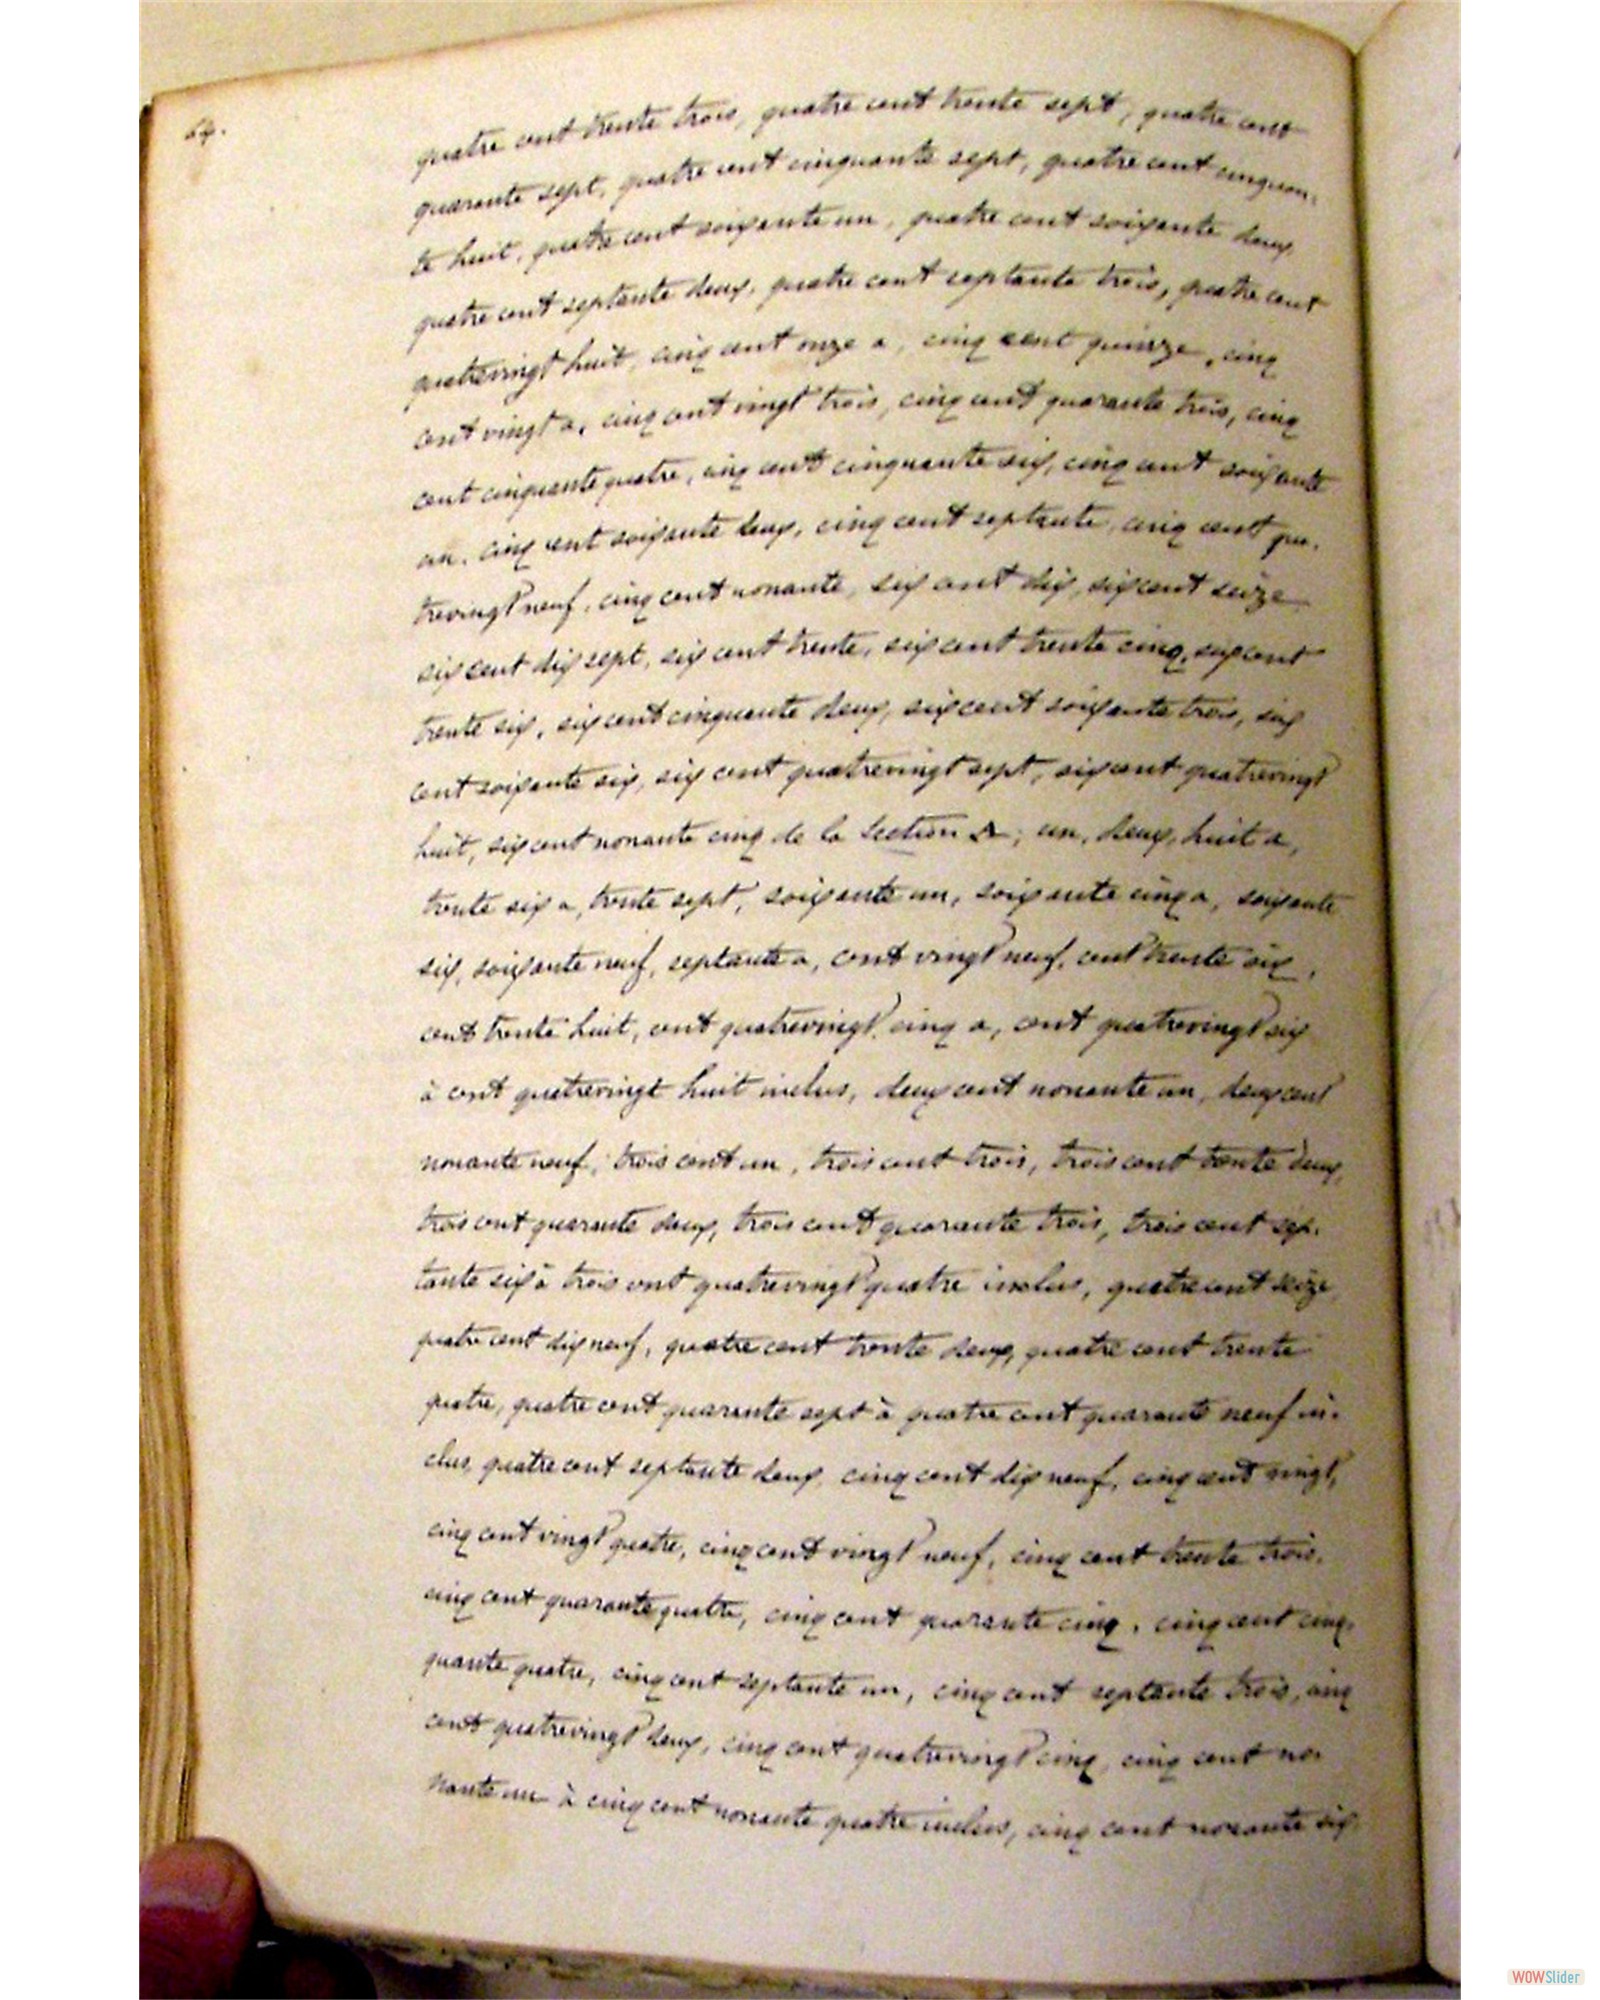 64.
quatre cent trente trois, quatre cent trente sept, quatre cent
quarante sept, quatre cent cinquante sept, quatre cent cinquan.
te huit, quatre cent soixante un, quatre cent soixante deux,
quatre cent septante deux, quatre cent septante trois, quatre cent
quatrevingt huit, cinq cent onze a, cinq cent quinze, cinq
cent vingt a, cinq cent vingt trois, cinq cent quarante trois, cinq
cent cinquante quatre, cinq cent cinquante six, cinq cent soixante
un, cinq cent soixante deux, cinq cent septante, cinq cent qua.
trevingt neuf, cinq cent nonante, six cent dix, six cent seize
six cent dix sept, six cent trente, six cent trente cinq, six cent
trente six, six cent cinquante deux, six cent soixante trois, six
cent soixante six, six cent quatrevingt sept, six cent quatrevingt
huit, six cent nonante cinq de la Section A; un, deux, huit a,
trente six a, trente sept, soixante un, soixante cinq a, soixante
six, soixante neuf, septante a, cent vingt neuf, cent trente six,
cent trente huit, cent quatrevingt cinq a, cent quatrevingt six
à cent quatrevingt huit inclus, deux cent nonante un, deux cent
nonante neuf, trois cent un, trois cent trois, trois cent trente deux,
trois cent quarante deux, trois cent quarante trois, trois cent sep.
tante six à trois cent quatrevingt quatre inclus, quatre cent seize,
quatre cent dix neuf, quatre cent trente deux, quatre cent trente
quatre, quatre cent quarante sept à quatre cent quarante neuf in.
clus, quatre cent septante deux, cinq cent dix neuf, cinq cent vingt,
cinq cent vingt quatre, cinq cent vingt neuf, cinq cent trente trois,
cinq cent quarante quatre, cinq cent quarante cinq, cinq cent cinq.
quante quatre, cinq cent septante un, cinq cent septante trois, cinq
cent quatrevingt deux, cinq cent quatrevingt cinq, cinq cent no.
nante un à cinq cent nonante quatre inclus, cinq cent nonante six
WOWSlider